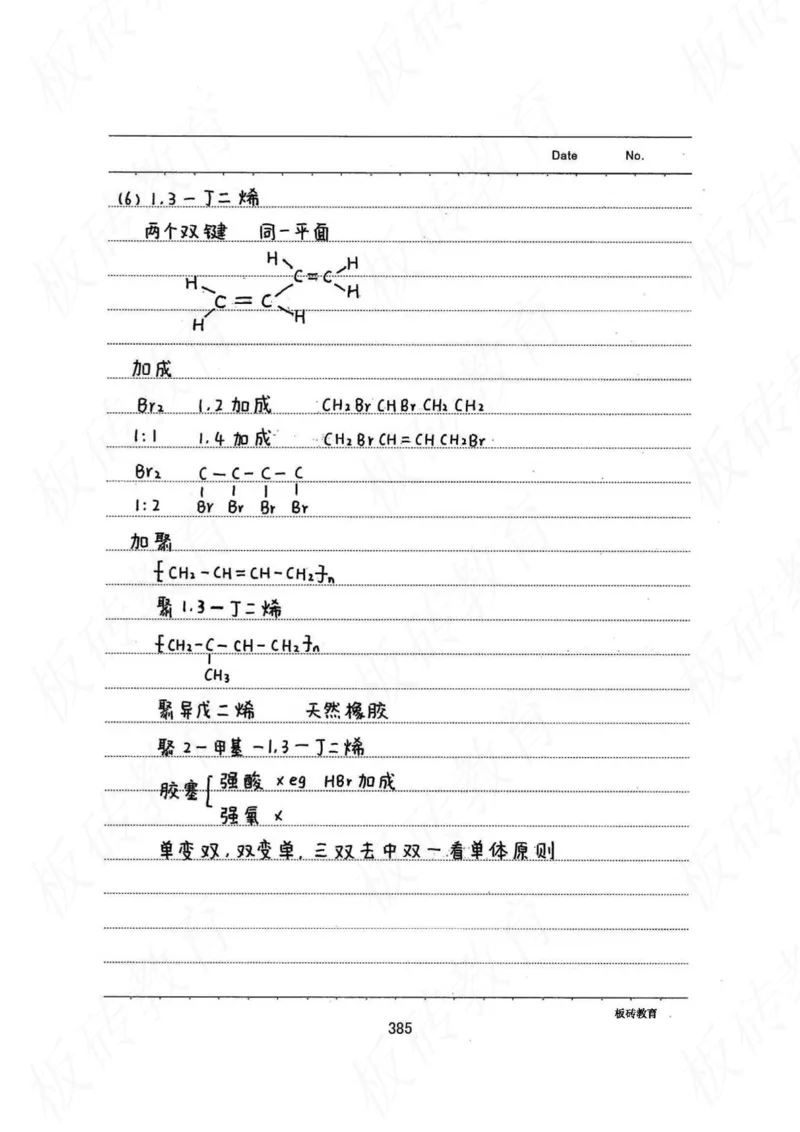 Date No.
(6) 1.3-丁二烯
两个双键 同一平面
H H
H C=C H
C=C H
H
加成
Br₂ 1.2加成 CH₂BrCHBrCH₂CH₂
1:1 1.4加成 CH₂BrCH=CHCH₂Br
Br₂ C-C-C-C
1:2 Br Br Br Br
加聚
⁅CH₂-CH=CH-CH₂⁆n
聚1.3-丁二烯
⁅CH₂-C-CH-CH₂⁆n
CH₃
聚异戊二烯 天然橡胶
聚2-甲基-1.3-丁二烯
胶塞 强酸 × eg HBr加成
强氧 ×
单变双,双变单,三双去中双一看单体原则
板砖教育
385